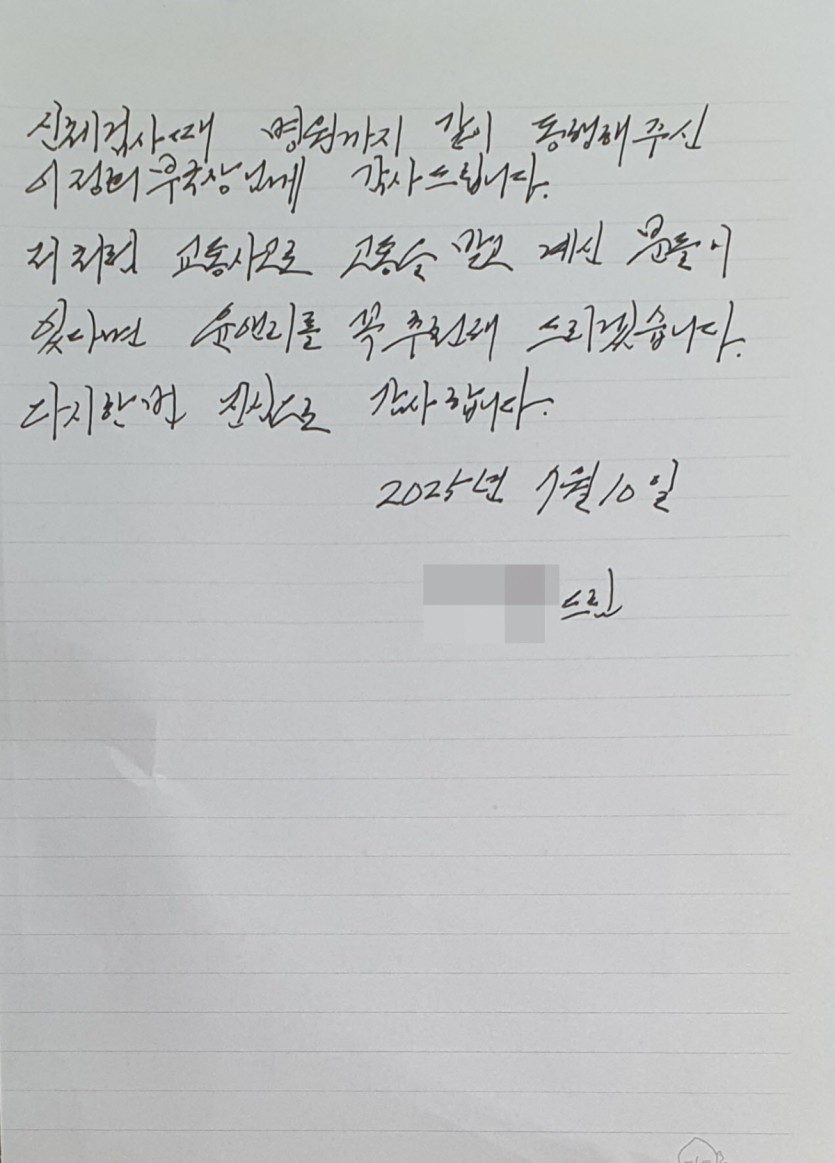 신체검사때 병원까지 같이 동행해주신
이정희 국장님께 감사드립니다.
저처럼 교통사고로 고통을 받고 계신 분들이
있다면 윤앤리를 꼭 추천해 드리겠습니다.
다시한번 진심으로 감사합니다.
2025년 1월 10일
드림